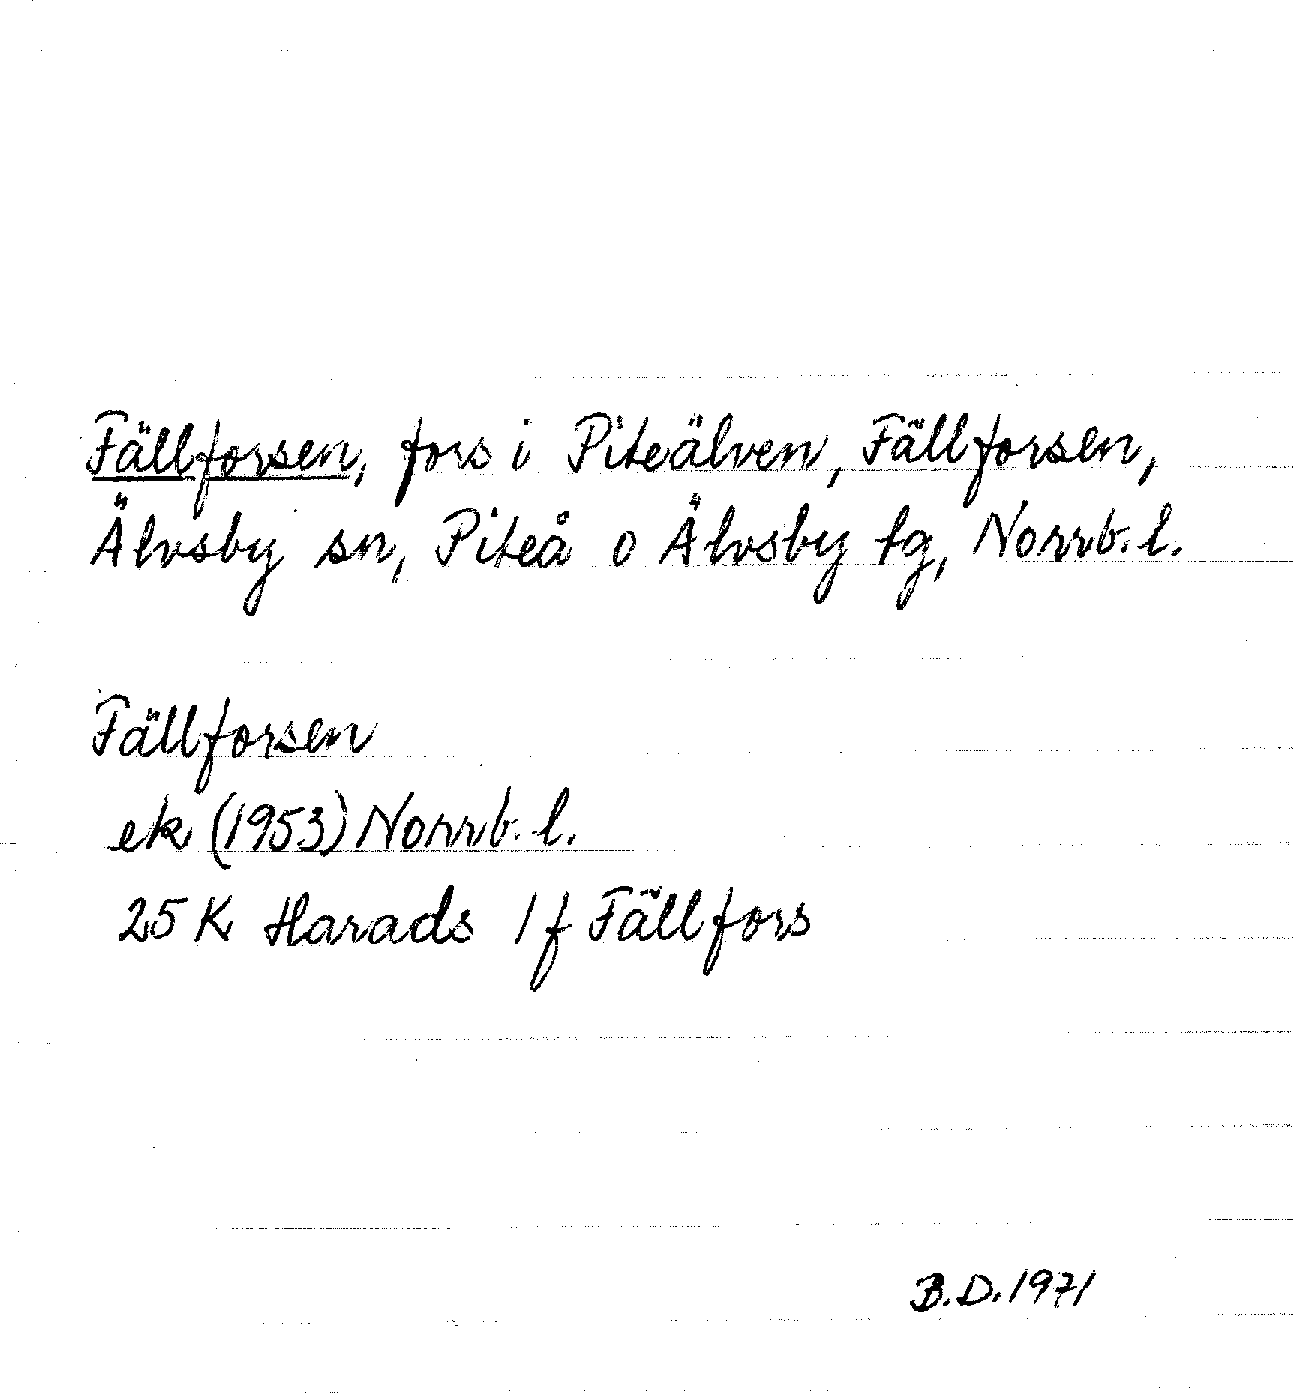 Fällforsen, fors i Piteälven, Fällforsen,
Älvsby sn, Piteå o Älvsby tg, Norrb. l.
Fällforsen
ek (1953) Norrb. l.
25 K Harads 1 f Fällfors
B.D. 1971